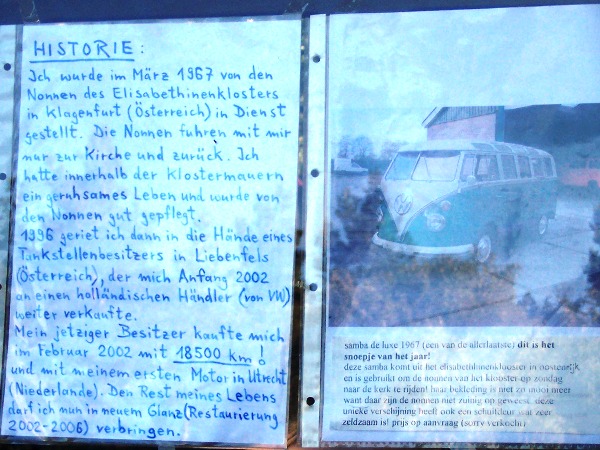 HISTORIE:
Ich wurde im März 1967 von den
Nonnen des Elisabethinenklosters
in Klagenfurt (Österreich) in Dienst
gestellt. Die Nonnen fuhren mit mir
nur zur Kirche und zurück. Ich
hatte innerhalb der Klostermauern
ein geruhsames Leben und wurde von
den Nonnen gut gepflegt.
1996 geriet ich dann in die Hände eines
Tankstellenbesitzers in Liebenfels
(Österreich), der mich Anfang 2002
an einen holländischen Händler (von VW)
weiter verkaufte.
Mein jetziger Besitzer kaufte mich
im Februar 2002 mit 18500 km!
und mit meinem ersten Motor in Utrecht
(Niederlande). Den Rest meines Lebens
darf ich nun in neuem Glanz (Restaurierung
2002-2006) verbringen.
samba de luxe 1967 (een van de allerlaatste) dit is het
snoepje van het jaar!
deze samba komt uit het elisabethhinenklooster in oostenrijk
en is gebruikt om de nonnen van het klooster op zondag
naar de kerk te rijden! haar bekleding is niet zo mooi meer
want daar zijn de nonnen niet zuinig op geweest. deze
unieke verschijning heeft ook een schuifdeur wat zeer
zeldzaam is! prijs op aanvraag (sorry verkocht)